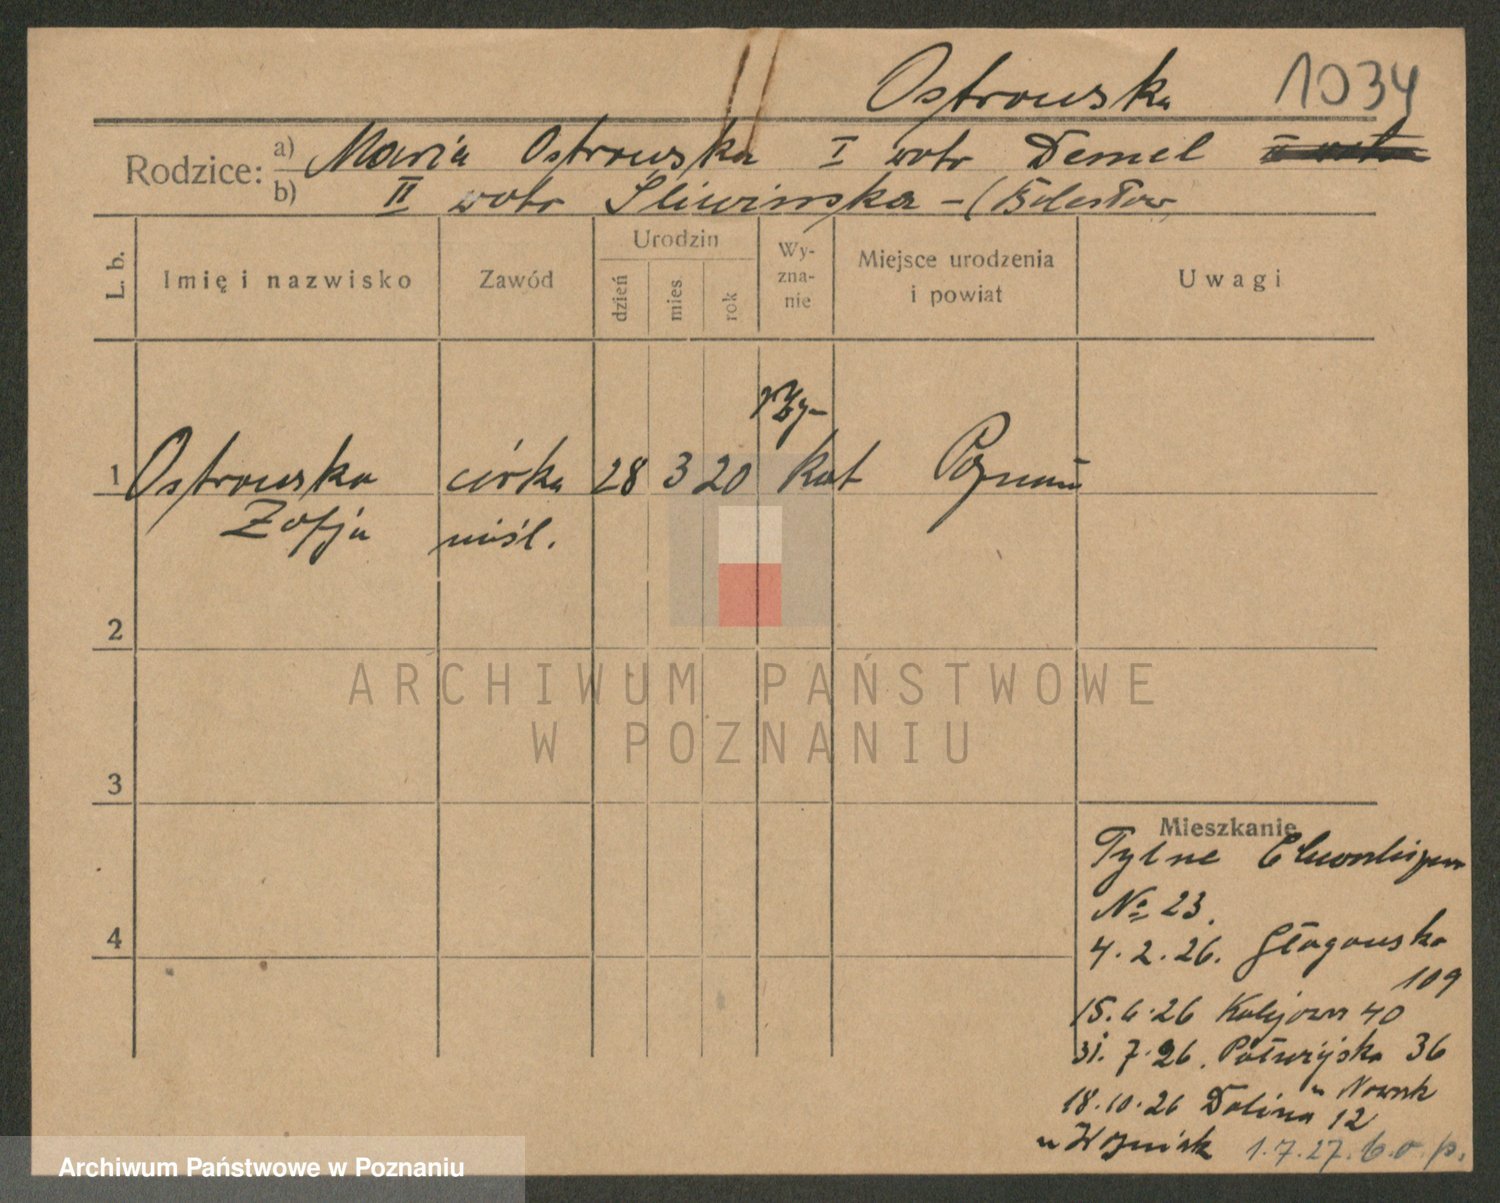 Ostrowska 1034
Rodzice: a) Maria Ostrowska I voto Demel
b) II voto Śliwińska - (Bolesław
L. b.
Imię i nazwisko
Zawód
Urodzin
dzień
mies.
rok
Wy-
zna-
nie
Miejsce urodzenia
i powiat
Uwagi
rzy-
1 Ostrowska córka 28 3 20 kat Poznań
Zofja nieśl.
2
3
4
Mieszkanie
Tylne
No 23.
4.2.26. Głogowska
109
15.6.26 40
31.7.26. Półwiejska 36
u Nowak
18.10.26 Dolina 12
u Woźniak 1.7.27. b.o.p.
ARCHIWUM PAŃSTWOWE
W POZNANIU
Archiwum Państwowe w Poznaniu